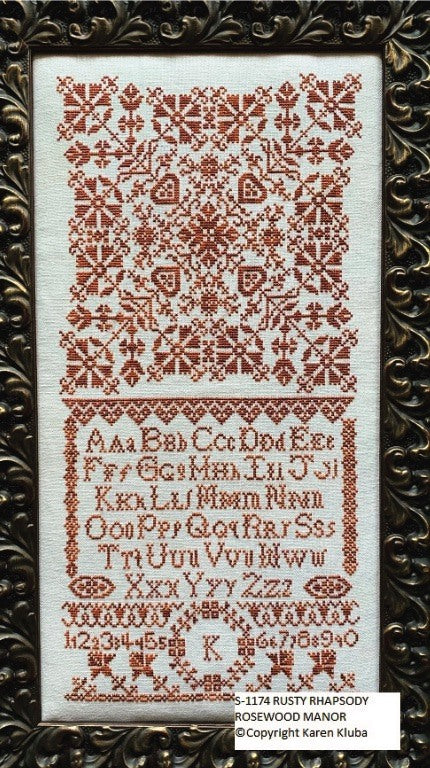 AAa BBb CCc DDd EEe
FFf GGg HHh IIi JJj
KKk LLl MMm NNn
OOo PPp QQq RRr SSs
TTt UUu VVv WWw
XXx YYy ZZz
1 2 3 4 5 6 7 8 9 0
K
S-1174 RUSTY RHAPSODY
ROSEWOOD MANOR
©Copyright Karen Kluba